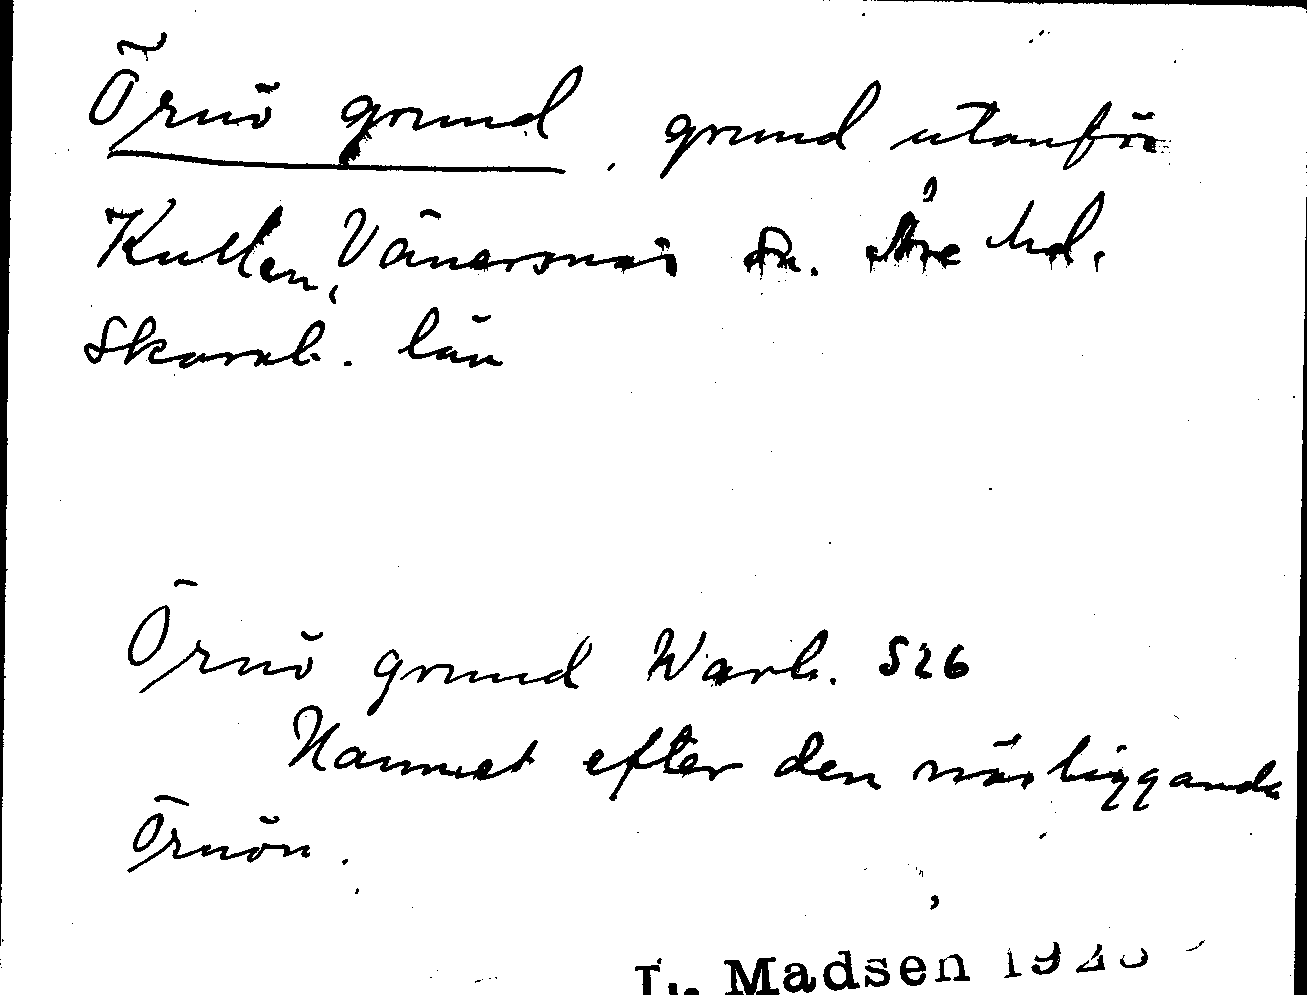 Örnö grund, grund utanför
Kullen, Vänersnäs sn. Åse hd.
Skarab. län
Örnö grund Warb. S26
Namnet efter den närliggande
Örnön.
L. Madsen 192